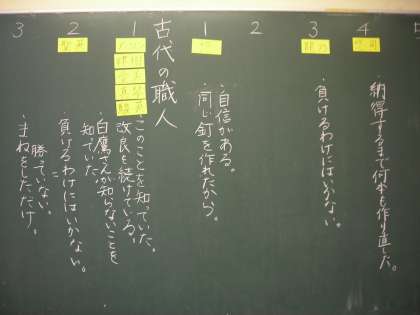 5
4
・納得するまで何本も作り直した。
3
・負けるわけにはいかない。
2
1
・自信がある。
・同じ釘を作れたから。
古代の職人
1
・このことを知っていた。
改良を続けている。
・白鷹さんが知らないことを
知っていた。
2
・負けるわけにはいかない。
=
勝っていない。
3
・まねをしただけ。